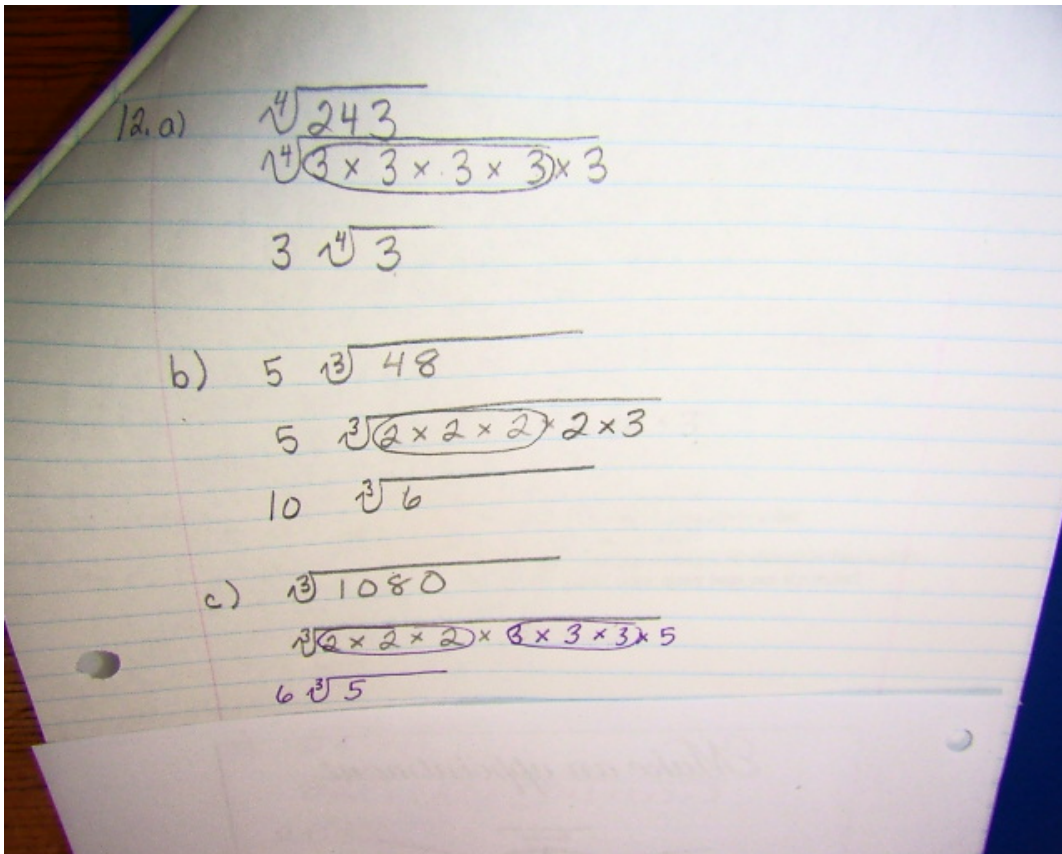 12. a) ∜243
∜3 × 3 × 3 × 3 × 3
3 ∜3
b) 5 ∛48
5 ∛2 × 2 × 2 × 2 × 3
10 ∛6
c) ∛1080
∛2 × 2 × 2 × 3 × 3 × 3 × 5
6 ∛5